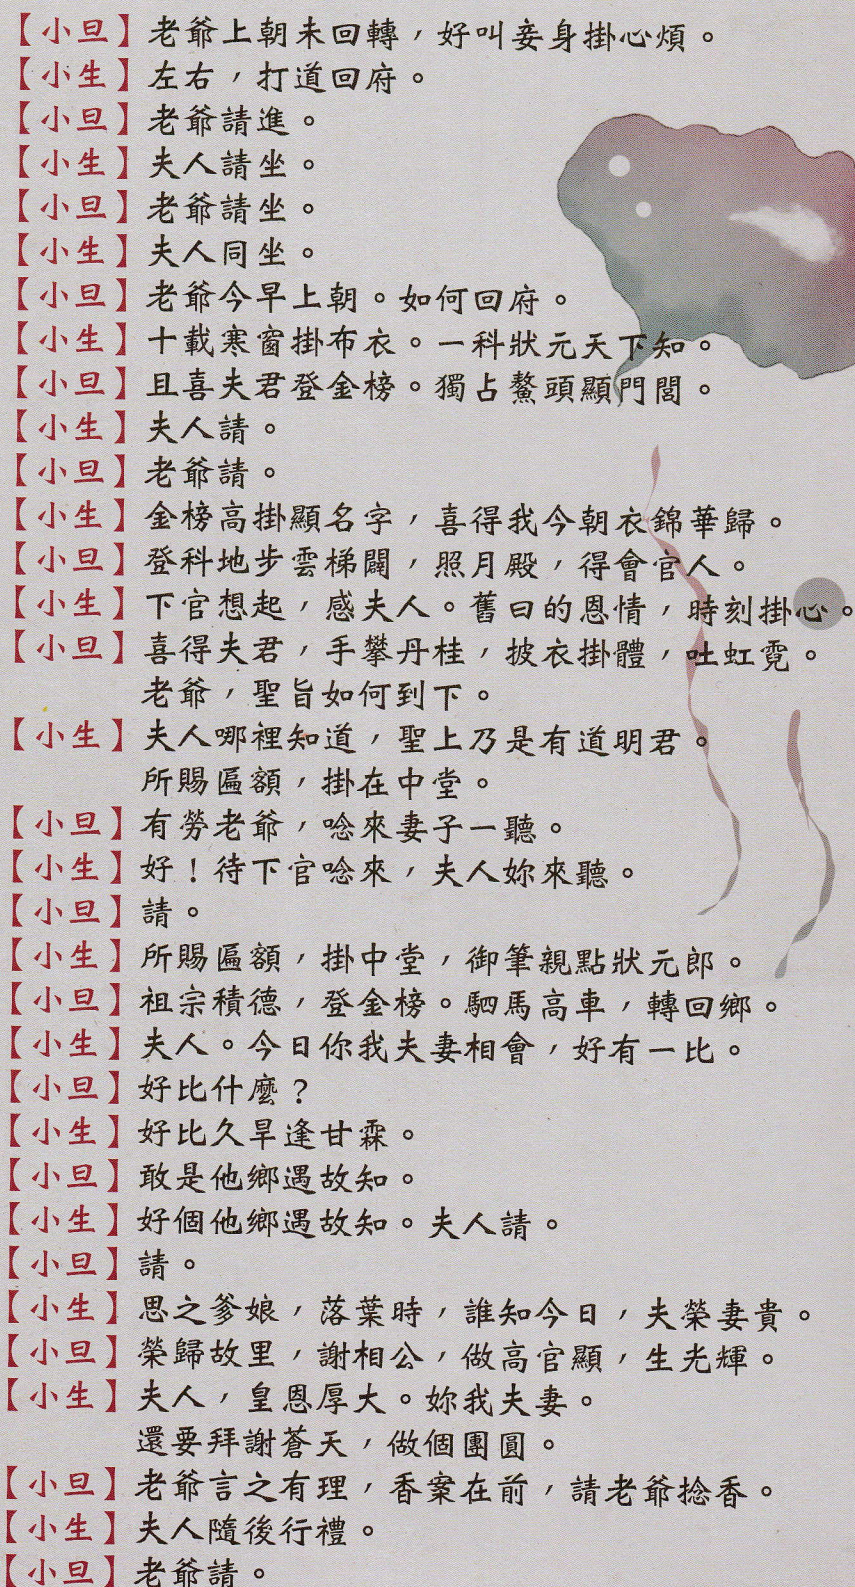 【小旦】老爺上朝未回轉，好叫妾身掛心煩。
【小生】左右，打道回府。
【小旦】老爺請進。
【小生】夫人請坐。
【小旦】老爺請坐。
【小生】夫人同坐。
【小旦】老爺今早上朝。如何回府。
【小生】十載寒窗掛布衣。一科狀元天下知。
【小旦】且喜夫君登金榜。獨占鰲頭顯門閭。
【小生】夫人請。
【小旦】老爺請。
【小生】金榜高掛顯名字，喜得我今朝衣錦華歸。
【小旦】登科地步雲梯闊，照月殿，得會官人。
【小生】下官想起，感夫人。舊日的恩情，時刻掛心。
【小旦】喜得夫君，手攀丹桂，披衣掛體，吐虹霓。
老爺，聖旨如何到下。
【小生】夫人哪裡知道，聖上乃是有道明君。
所賜匾額，掛在中堂。
【小旦】有勞老爺，唸來妻子一聽。
【小生】好！待下官唸來，夫人妳來聽。
【小旦】請。
【小生】所賜匾額，掛中堂，御筆親點狀元郎。
【小旦】祖宗積德，登金榜。駟馬高車，轉回鄉。
【小生】夫人。今日你我夫妻相會，好有一比。
【小旦】好比什麼？
【小生】好比久旱逢甘霖。
【小旦】敢是他鄉遇故知。
【小生】好個他鄉遇故知。夫人請。
【小旦】請。
【小生】思之爹娘，落葉時，誰知今日，夫榮妻貴。
【小旦】榮歸故里，謝相公，做高官顯，生光輝。
【小生】夫人，皇恩厚大。妳我夫妻。
還要拜謝蒼天，做個團圓。
【小旦】老爺言之有理，香案在前，請老爺捻香。
【小生】夫人隨後行禮。
【小旦】老爺請。